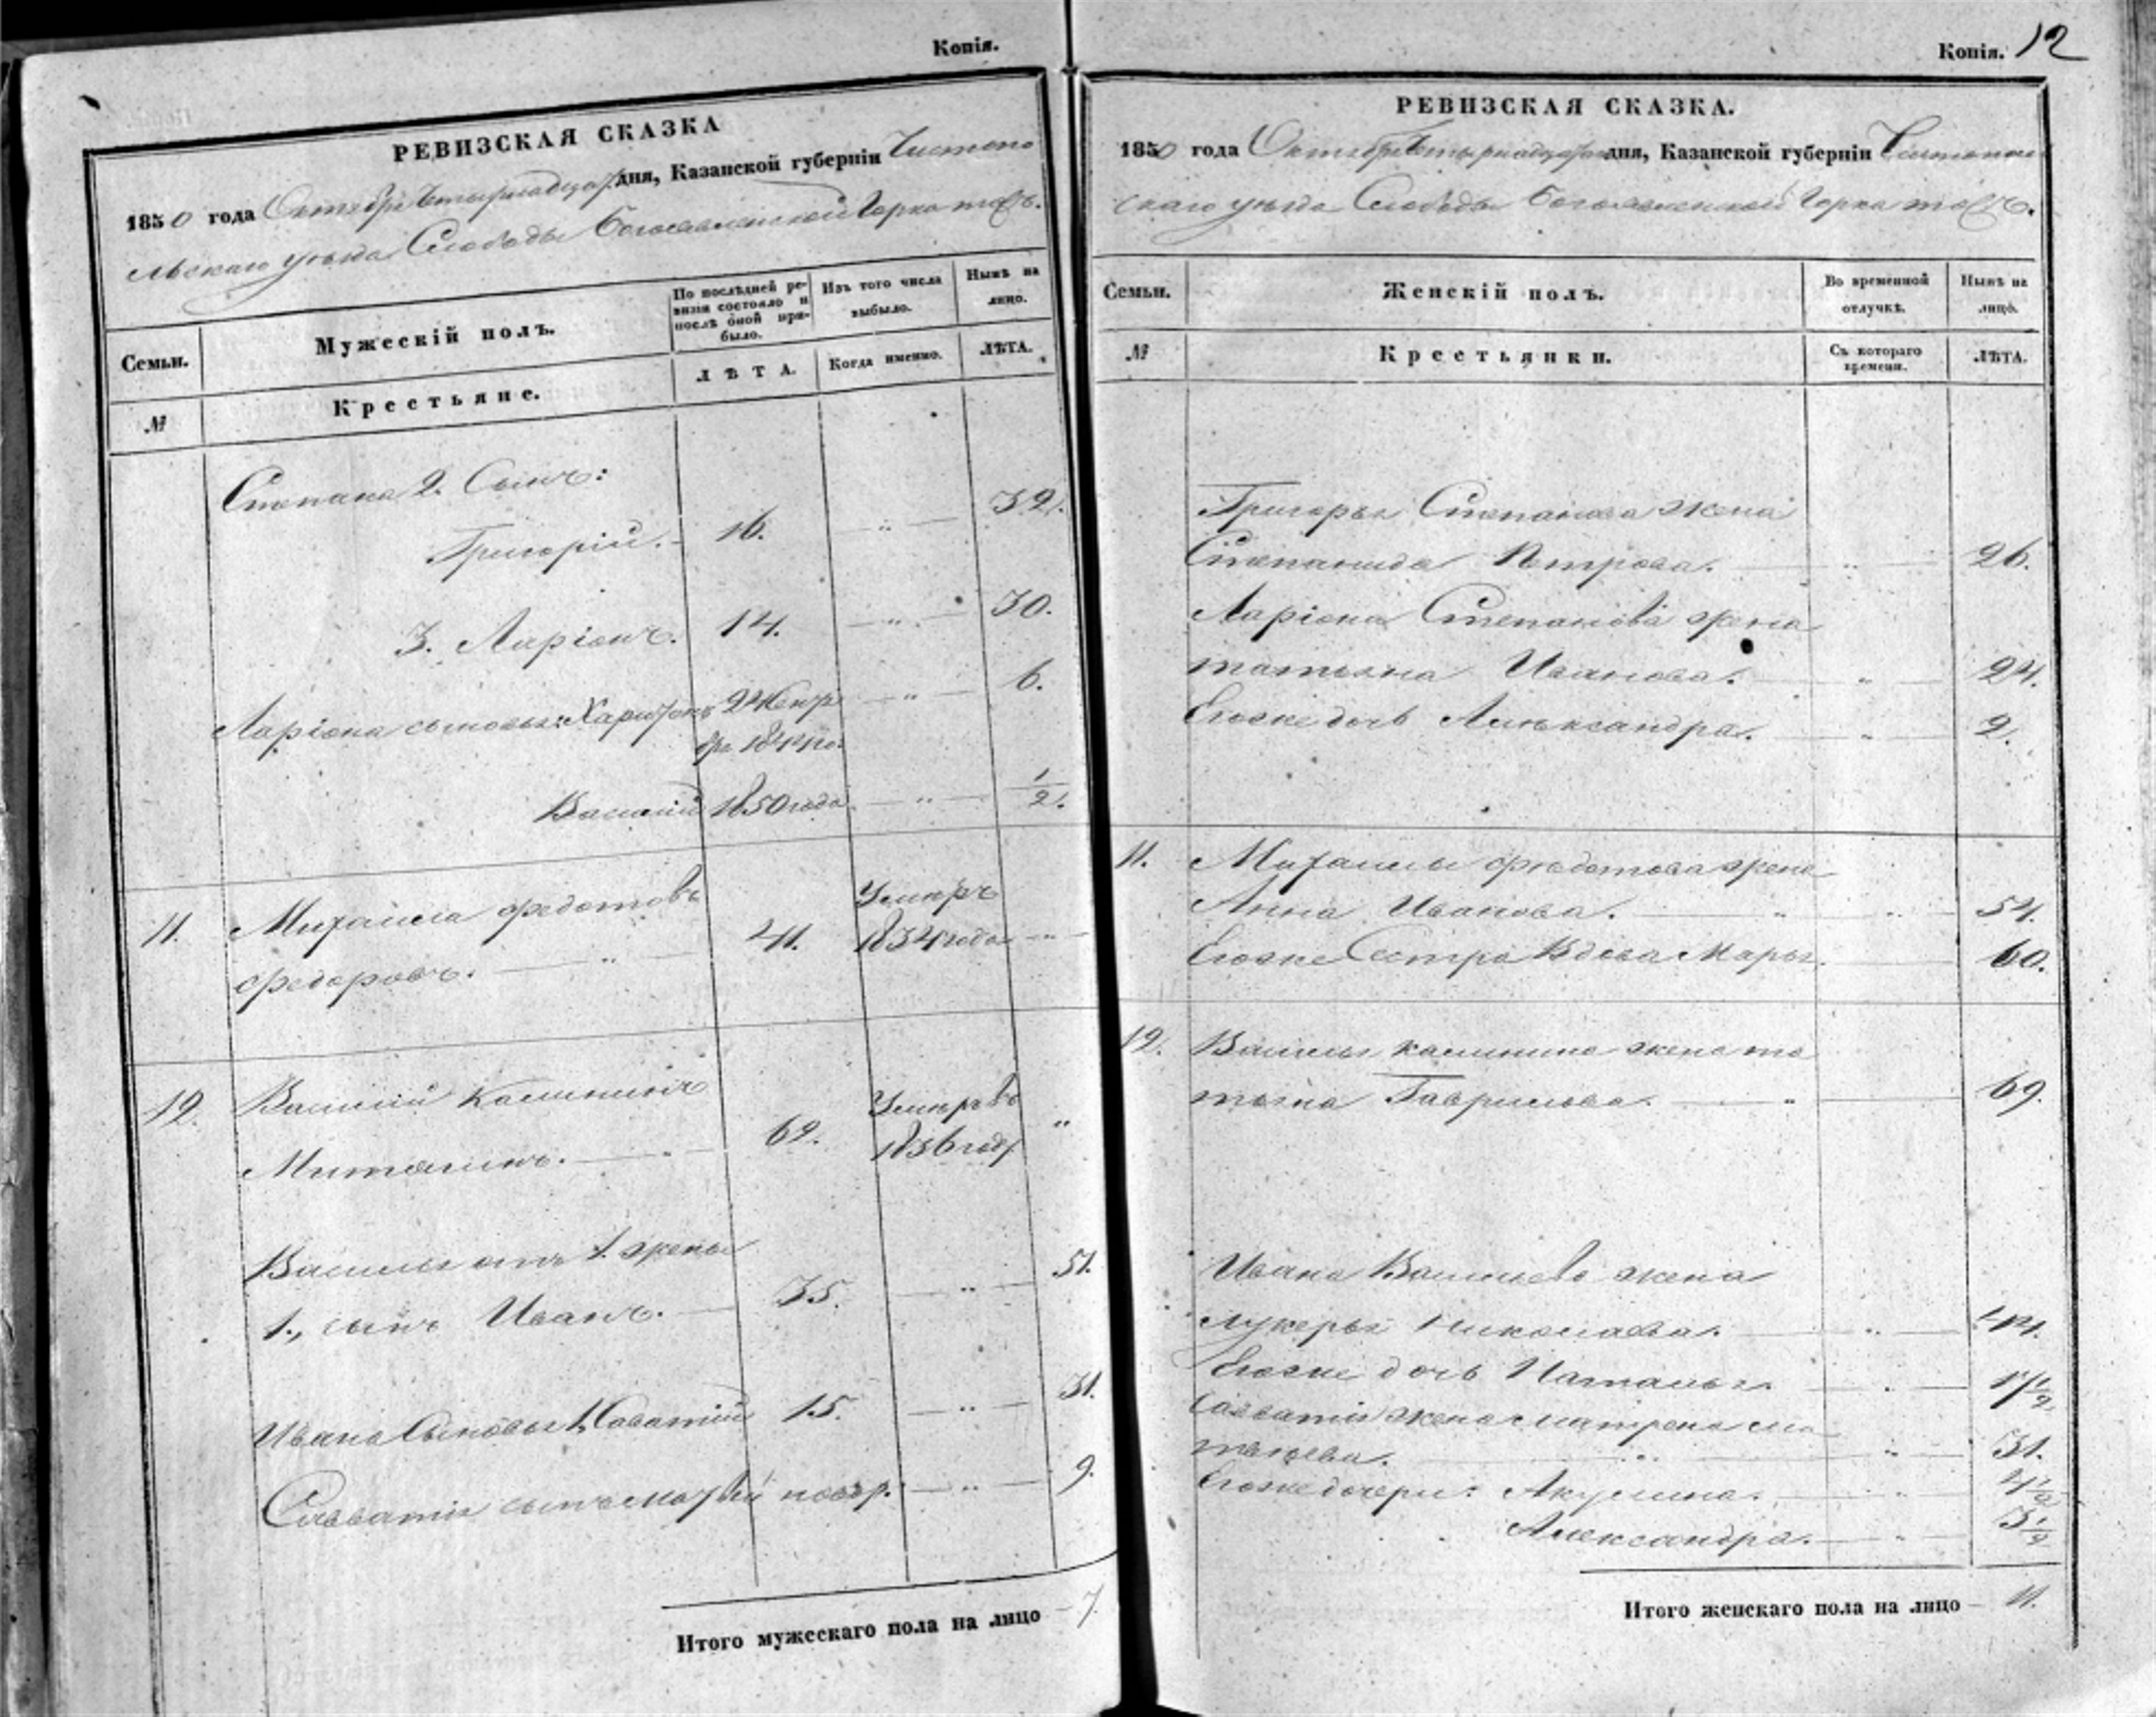 Копія.
РЕВИЗСКАЯ СКАЗКА
1850 года Октября Четырнадцатаго дня, Казанской губерніи Чистопо
льскаго уѣзда Слободы Богоявленской Горка тожъ.
Семьи.
Мужескій полъ.
По послѣдней ре-
визіи состояло и
послѣ оной при-
было.
Изъ того числа
выбыло.
Нынѣ на
лицо.
№
Крестьяне.
ЛѢТА.
Когда именно.
ЛѢТА.
Степана 2. Сынъ:
Григорій. 16. " 32.
3. Ларіонъ. 14. " 30.
Ларіона сыновья: Харитонъ " 6.
Василій 1850 года " 1/2.
11. Михаила Федотовъ Умеръ
Федоровъ. " 41. 1834 года "
12. Василій Калининъ Умеръ въ
62. 1836 году "
Василья отъ 1. жены
1., сынъ Иванъ. 35. " 51.
Ивана Сыновья 1. Саватій 15. " 31.
Савватія сынъ " 9.
Итого мужескаго пола на лицо 7.
Копія. 12
РЕВИЗСКАЯ СКАЗКА.
1850 года Октября Четырнадцатаго дня, Казанской губерніи Чистополь
скаго уѣзда Слободы Богоявленской Горка тожъ.
Семьи.
Женскій полъ.
Во временной
отлучкѣ.
Нынѣ на
лицо.
№
Крестьянки.
Съ котораго
времени.
ЛѢТА.
Григорья Степанова жена
Степанида Петрова. " 26.
Ларіона Степанова жена
татьяна Иванова. " 24.
Егоже дочь Александра. " 2.
11. Михаилы Федотова жена
Анна Иванова. " " 54.
Егоже Сестра Вдова Марья. 60.
12. Василья Калинина жена та
тьяна Гаврилова. " 69.
Ивана Васильева жена
лукерья Николаева. " 44.
Егоже дочь Наталья. " 17 1/2
Савватія жена матрена ма
твѣева. " " 31.
Егоже дочери: Акулина. " 4 1/2
Александра. " 3 1/2
Итого женскаго пола на лицо 11.